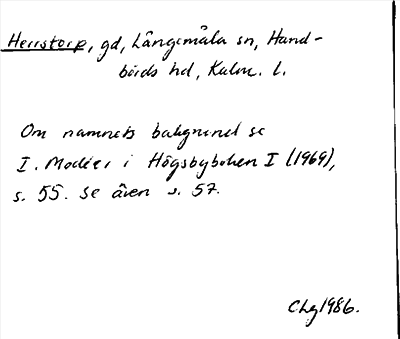 Herrstorp, gd, Långemåla sn, Hand-
börds hd, Kalm. l.
Om namnets bakgrund se
I. Modéer i Högsbyboken I (1969),
s. 55. Se även s. 57.
Chg 1986.